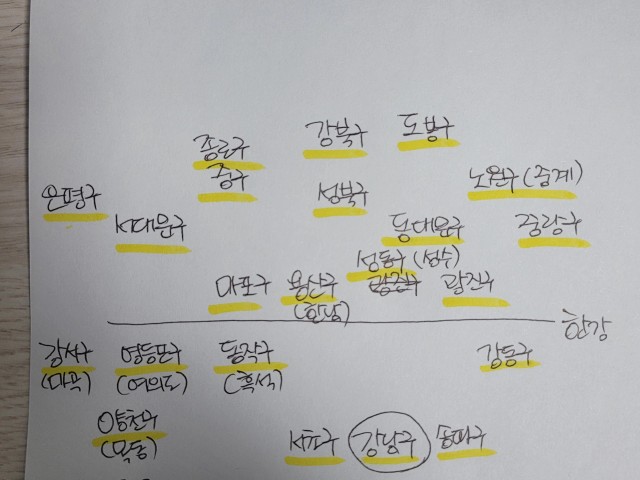 강북구 도봉구
종로구
중구
노원구 (중계)
은평구 성북구
서대문구 동대문구 중랑구
성동구 (성수)
마포구 용산구 광진구
(한남)
한강
강서구 영등포구 동작구 강동구
(마곡) (여의도) (흑석)
양천구
(목동)
서초구 강남구 송파구